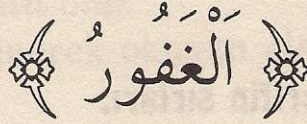 اَلْغَفُورُ